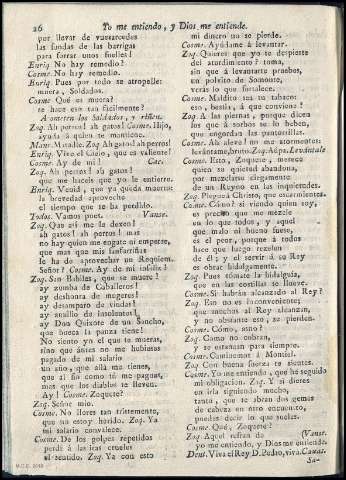 26 Yo me entiendo, y Dios me entiende.
por llevar de vuesarcedes
las fundas de las barrigas
para forrar unos fuelles!
Enriq. No hay remedio?
Cosme. No hay remedio.
Enriq. Pues por todo se atropelle:
muera, Soldados.
Cosme. Qué es muera?
te hace eso tan facilmente?
Acometen los Soldados, y riñen.
Zoq. Ah perros! ah gatos! Cosme. Hijo,
ayuda á quien te mantiene.
Man. Matadle. Zoq. Ah gatos! ah perros!
Enriq. Vive el Cielo, que es valiente!
Cosme. Ay de mí! Cae.
Zoq. Ah perros! ah gatos!
que me haceis que yo le entierre.
Enriq. Venid, que ya queda muerto:
la brevedad aproveche
el tiempo que se ha perdido.
Todos. Vamos pues. Vanse.
Zoq. Que así me le dexo!
ah gatos! ah perros! mas
no hay quien me engate ni emperre,
que mas que mis fanfarriñas
le ha de aprovechar un Requiem.
Señor? Cosme. Ay de mi infeliz!
Zoq. San Babiles, que se muere?
ay zumba de Caballeros!
ay deshonra de mugeres!
ay desamparo de viudas!
ay anillo de insolentes!
ay Don Quixote de un Sancho,
que hueca la panza tiene!
No siento yo el que te mueras,
sino que ántes no me hubieras
pagado de mi salario
un año, que allá me tienes,
que á fin como tú me pagues,
mas que los diablos te lleven.
Ay! Cosme. Zoquete?
Zoq. Señor mio.
Cosme. No llores tan tristemente,
que no estoy herido. Zoq. Ya
mi salario convalece.
Cosme. De los golpes repetidos
perdí á las iras crueles
el sentido. Zoq. Ya con esto
mi dinero no se pierde.
Cosme. Ayúdame á levantar.
Zoq. Quieres que yo te despierte
del atordimiento? toma,
sin que á levantarte pruebes,
un polvito de Somonte,
verás lo que fortalece.
Cosme. Maldito sea tu tabaco:
eso, bestia, á qué conviene?
Zoq. A las piernas, porque dicen
los que á sorbos se lo beben,
que engordan las pantorrillas.
Cosme. Ah aleve! no me atormentes:
levántame, bruto. Zoq. Aúpa. Levántale
Cosme. Esto, Zoquete, merece
quien su quietud abandona,
por mezclarse ciegamente
de un Reyno en las inquietudes.
Zoq. Plegue á Christo, que escarmientes.
Cosme. Cómo? si siendo quien soy,
es preciso que me mezcle
en lo que todos, y aquel
que malo ni bueno fuese,
es el peor, porque á todos
hace que luego rezelen
de él; y el servir á su Rey
es obrar hidalgamente.
Zoq. Pues tómate la hidalguía,
que en las costillas te llueve.
Cosme. Si habrán alcanzado al Rey?
Zoq. Eso no es inconveniente;
que muchos al Rey alcanzan,
y no obstante eso, se pierden.
Cosme. Cómo, asno?
Zoq. Como no cobran,
y se estarían para siempre.
Cosme. Caminemos á Montiel.
Zoq. Con buena fuerza te sientes.
Cosme. Yo me entiendo, que he seguido
mi obligacion. Zoq. Y si dieres
en irla siguiendo mucho,
tanto, que te abran dos gemes
de cabeza en otro encuentro,
puedas decir lo que sueles.
Cosme. Qué, Zoquete?
Zoq. Aquel refran de (Vanse.
yo me entiendo, y Dios me entiende.
Dent. Viva el Rey D. Pedro, viva. Caxas.
Sa-